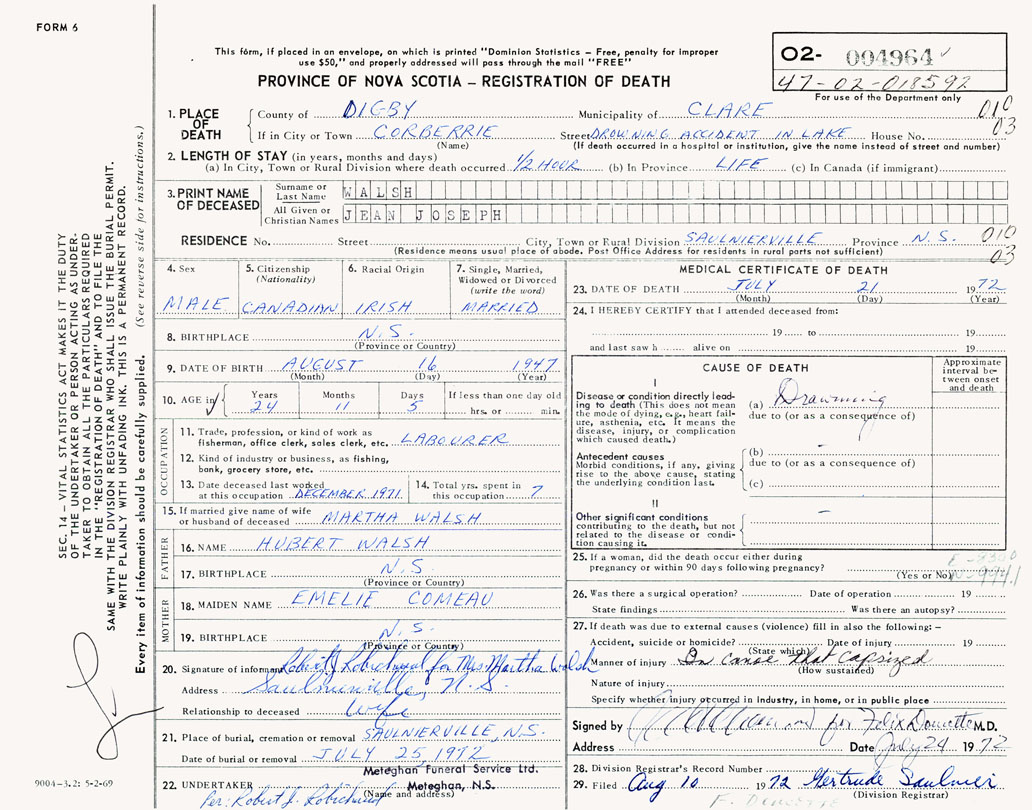 FORM 6
This form, if placed in an envelope, on which is printed "Dominion Statistics – Free, penalty for improper
use $50," and properly addressed will pass through the mail "FREE"
PROVINCE OF NOVA SCOTIA – REGISTRATION OF DEATH
O2- 004964
47-02-018592
For use of the Department only
SEC. 14 – VITAL STATISTICS ACT MAKES IT THE DUTY
OF THE UNDERTAKER OR PERSON ACTING AS UNDER-
TAKER TO OBTAIN ALL THE PARTICULARS REQUIRED
IN THE "REGISTRATION OF DEATH" AND TO FILE THE
SAME WITH THE DIVISION REGISTRAR WHO SHALL ISSUE THE BURIAL PERMIT.
WRITE PLAINLY WITH UNFADING INK. THIS IS A PERMANENT RECORD.
Every item of information should be carefully supplied. (See reverse side for instructions.)
1. PLACE OF DEATH
County of DIGBY Municipality of CLARE 010
If in City or Town CORBERRIE Street DROWNING ACCIDENT IN LAKE House No. 03
(Name) (If death occurred in a hospital or institution, give the name instead of street and number)
2. LENGTH OF STAY (in years, months and days)
(a) In City, Town or Rural Division where death occurred 1/2 HOUR (b) In Province LIFE (c) In Canada (if immigrant)
3. PRINT NAME OF DECEASED
Surname or Last Name WALSH
All Given or Christian Names JEAN JOSEPH
RESIDENCE No. Street City, Town or Rural Division SAULNIERVILLE Province N.S. 010
(Residence means usual place of abode. Post Office Address for residents in rural parts not sufficient) 03
4. Sex MALE
5. Citizenship (Nationality) CANADIAN
6. Racial Origin IRISH
7. Single, Married, Widowed or Divorced (write the word) MARRIED
8. BIRTHPLACE N.S.
(Province or Country)
9. DATE OF BIRTH AUGUST 16 1947
(Month) (Day) (Year)
10. AGE in Years Months Days If less than one day old
24 11 5 hrs. or min.
OCCUPATION
11. Trade, profession, or kind of work as
fisherman, office clerk, sales clerk, etc. LABOURER
12. Kind of industry or business, as fishing,
bank, grocery store, etc.
13. Date deceased last worked
at this occupation DECEMBER 1971
14. Total yrs. spent in
this occupation 7
15. If married give name of wife
or husband of deceased MARTHA WALSH
FATHER
16. NAME HUBERT WALSH
17. BIRTHPLACE N.S.
(Province or Country)
MOTHER
18. MAIDEN NAME EMELIE COMEAU
19. BIRTHPLACE N.S.
(Province or Country)
20. Signature of informant Robert J. Robichaud for Mrs. Martha Walsh
Address Saulnierville, N.S.
Relationship to deceased Wife
21. Place of burial, cremation or removal SAULNIERVILLE, N.S.
Date of burial or removal JULY 25, 1972
Meteghan Funeral Service Ltd.
22. UNDERTAKER Meteghan, N.S.
(Name and address)
Per: Robert J. Robichaud
9004-3.2: 5-2-69
MEDICAL CERTIFICATE OF DEATH
23. DATE OF DEATH JULY 21 1972
(Month) (Day) (Year)
24. I HEREBY CERTIFY that I attended deceased from:
19 to 19
and last saw h alive on 19
CAUSE OF DEATH
Approximate interval be-
tween onset
and death
I
Disease or condition directly lead-
ing to death (This does not mean
the mode of dying, e.g., heart fail-
ure, asthenia, etc. It means the
disease, injury, or complication
which caused death.)
(a) Drowning
due to (or as a consequence of)
Antecedent causes
Morbid conditions, if any, giving
rise to the above cause, stating
the underlying condition last.
(b) –
due to (or as a consequence of)
(c)
II
Other significant conditions
contributing to the death, but not
related to the disease or condi-
tion causing it.
–
25. If a woman, did the death occur either during
pregnancy or within 90 days following pregnancy?
(Yes or No)
26. Was there a surgical operation? Date of operation 19
State findings Was there an autopsy?
27. If death was due to external causes (violence) fill in also the following:–
Accident, suicide or homicide? Date of injury 19
(State which)
Manner of injury In canoe that capsized
(How sustained)
Nature of injury
Specify whether injury occurred in industry, in home, or in public place
Signed by for Felix Doucette M.D.
Address Date July 24 1972
28. Division Registrar's Record Number
29. Filed Aug 10 1972 Gertrude Saulnier
(Division Registrar)
F. DOUCETTE